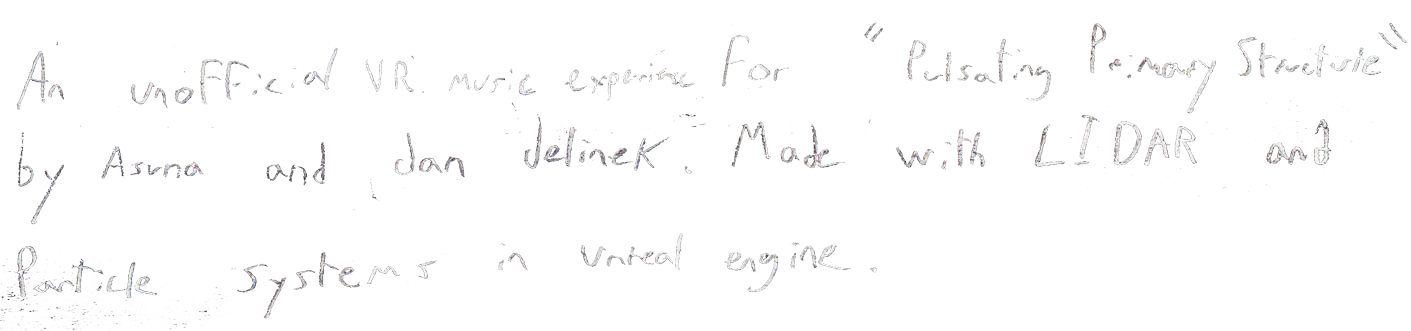 An unofficial VR music experience for "Pulsating Primary Structure"
by Asuna and dan Jelinek. Made with LIDAR and
Particle systems in Unreal engine.